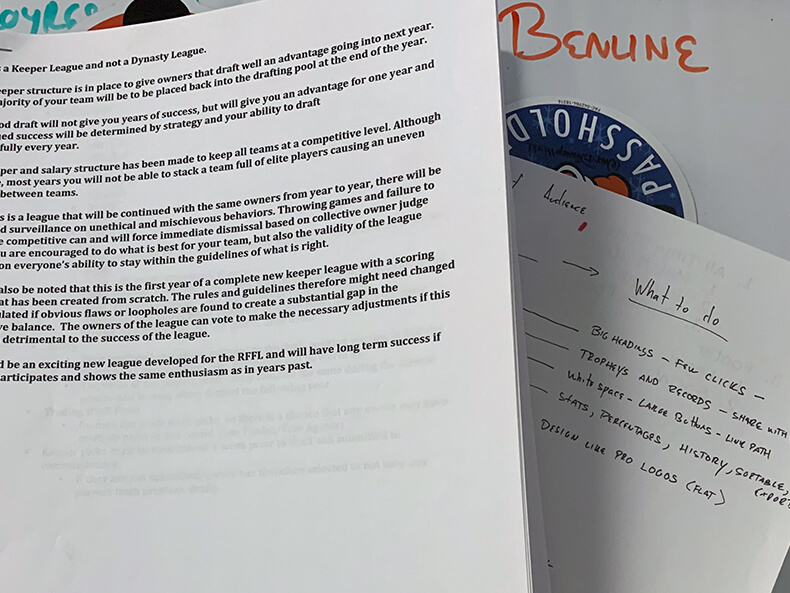 a Keeper League and not a Dynasty League.
eeper structure is in place to give owners that draft well an advantage going into next year.
ajority of your team will be to be placed back into the drafting pool at the end of the year.
od draft will not give you years of success, but will give you an advantage for one year and
ed success will be determined by strategy and your ability to draft
fully every year.
per and salary structure has been made to keep all teams at a competitive level. Although
, most years you will not be able to stack a team full of elite players causing an uneven
between teams.
s is a league that will be continued with the same owners from year to year, there will be
d surveillance on unethical and mischievous behaviors. Throwing games and failure to
e competitive can and will force immediate dismissal based on collective owner judge
u are encouraged to do what is best for your team, but also the validity of the league
on everyone's ability to stay within the guidelines of what is right.
also be noted that this is the first year of a complete new keeper league with a scoring
at has been created from scratch. The rules and guidelines therefore might need changed
ulated if obvious flaws or loopholes are found to create a substantial gap in the
ve balance. The owners of the league can vote to make the necessary adjustments if this
detrimental to the success of the league.
d be an exciting new league developed for the RFFL and will have long term success if
articipates and shows the same enthusiasm as in years past.
BENLINE
PASSHOLD
Audience
What to do
BIG HEADINGS - FEW CLICKS -
TROPHEYS AND RECORDS - SHARE WITH
WHITE SPACE - LARGE BUTTONS - LINK PATH
STATS, PERCENTAGES, HISTORY, SORTABLE,
EXPORT
DESIGN LIKE PRO LOGOS (FLAT)